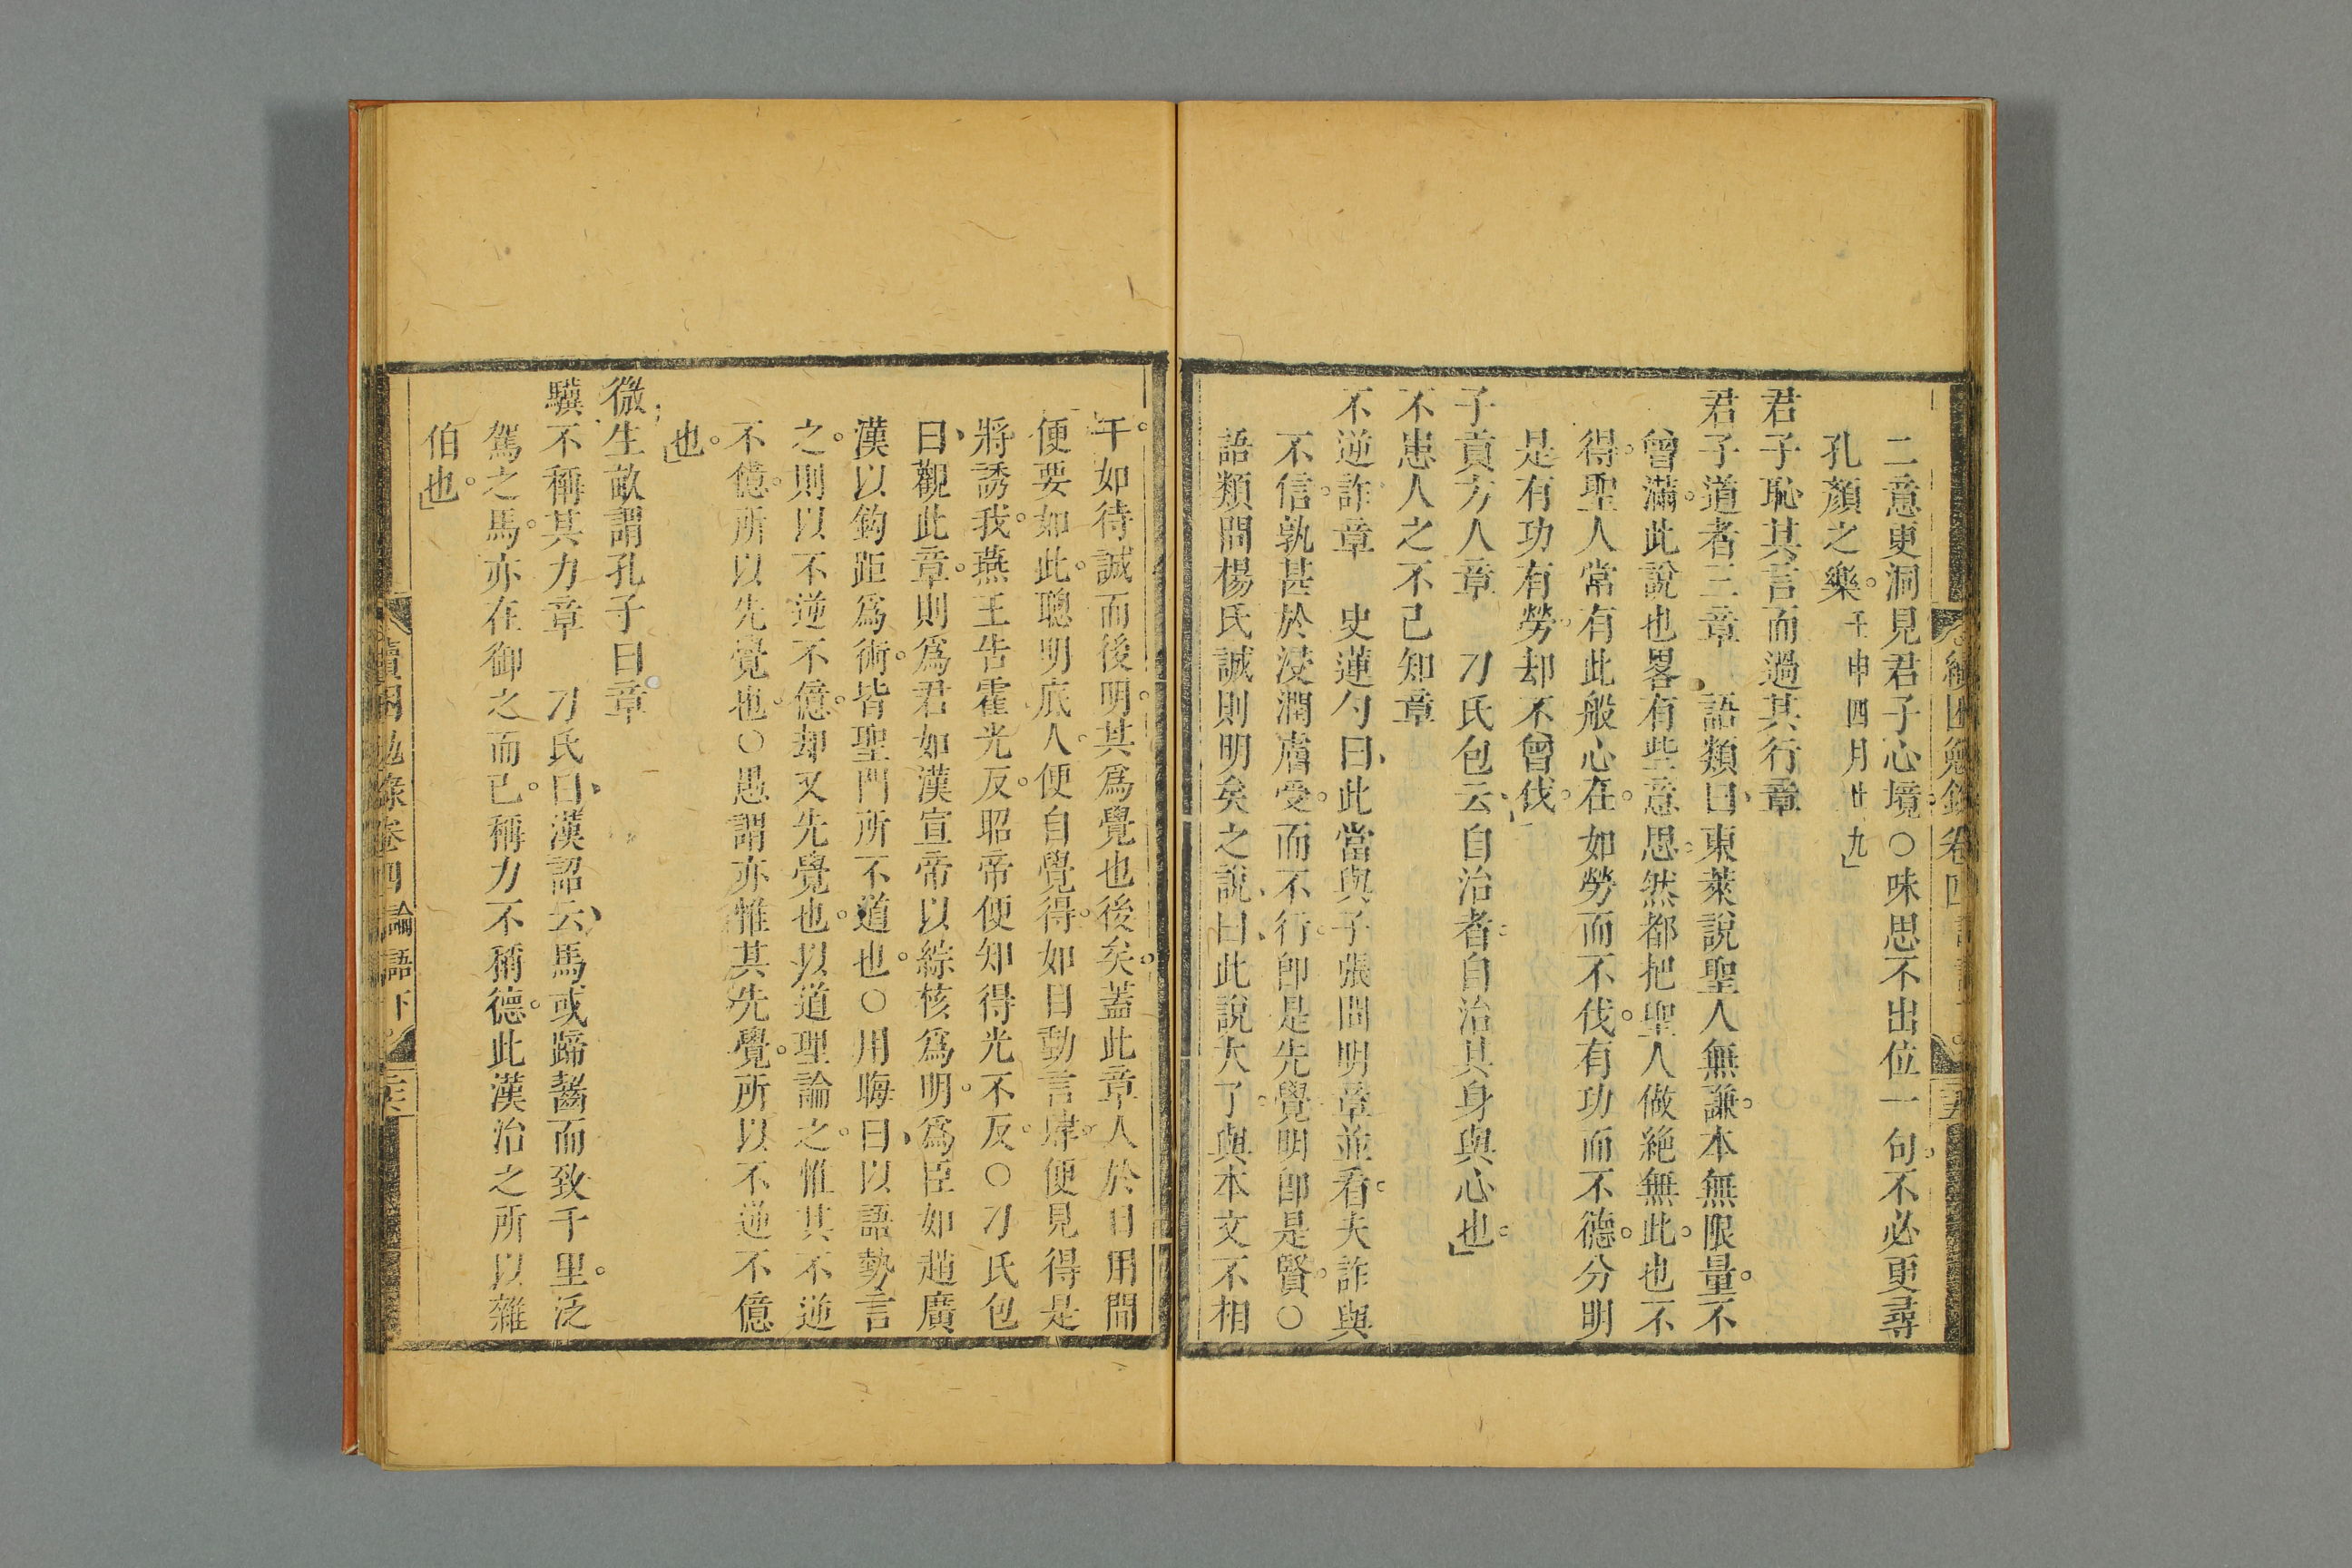 二意更洞見君子心境○味思不出位一句不必更尋
孔顏之樂。壬申四月廿九」
君子恥其言而過其行章
君子道者三章　語類曰、東萊說聖人無謙。本無限量。不
曾滿。此說也畧有些意思。然都把聖人做絶無此。也不
得。聖人常有此般心在。如勞而不伐。有功而不德。分明
是有功有勞。却不曾伐。」
子貢方人章　刀氏包云、自治者。自治其身與心也。」
不患人之不己知章
不逆詐章　史蓮勺曰、此當與子張問明章並看。夫詐與
不信。孰甚於浸潤膚受。而不行。卽是先覺明卽是賢。○
語類問楊氏誠則明矣之說、曰、此說大了。與本文不相
干。如待誠而後明。其爲覺也後矣。蓋此章人於日用間
便要如此。聰明底人。便自覺得。如目動言肆。便見得是
將誘我。燕王告霍光反。昭帝便知得光不反。○刀氏包
曰、觀此章。則爲君如漢宣帝以綜核爲明。爲臣如趙廣
漢以鈎距爲術。皆聖門所不道也。○用晦曰、以語勢言
之。則以不逆不億。却又先覺也。以道理論之。惟其不逆
不億。所以先覺也。○愚謂亦惟其先覺。所以不逆不億
也。」
微生畝謂孔子曰章
驥不稱其力章　刀氏曰、漢詔云、馬或蹄齧而致千里。泛
駕之馬。亦在御之而已。稱力不稱德。此漢治之所以雜
伯也。」
續困勉錄卷四　論語下。　三六